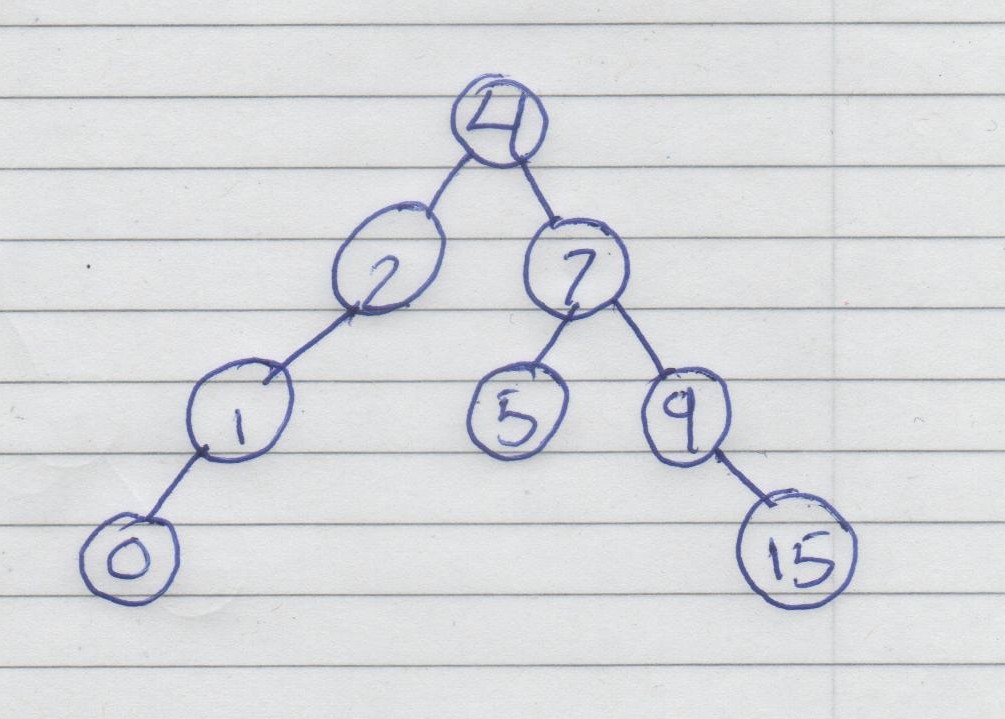 4
2 7
1 5 9
0 15